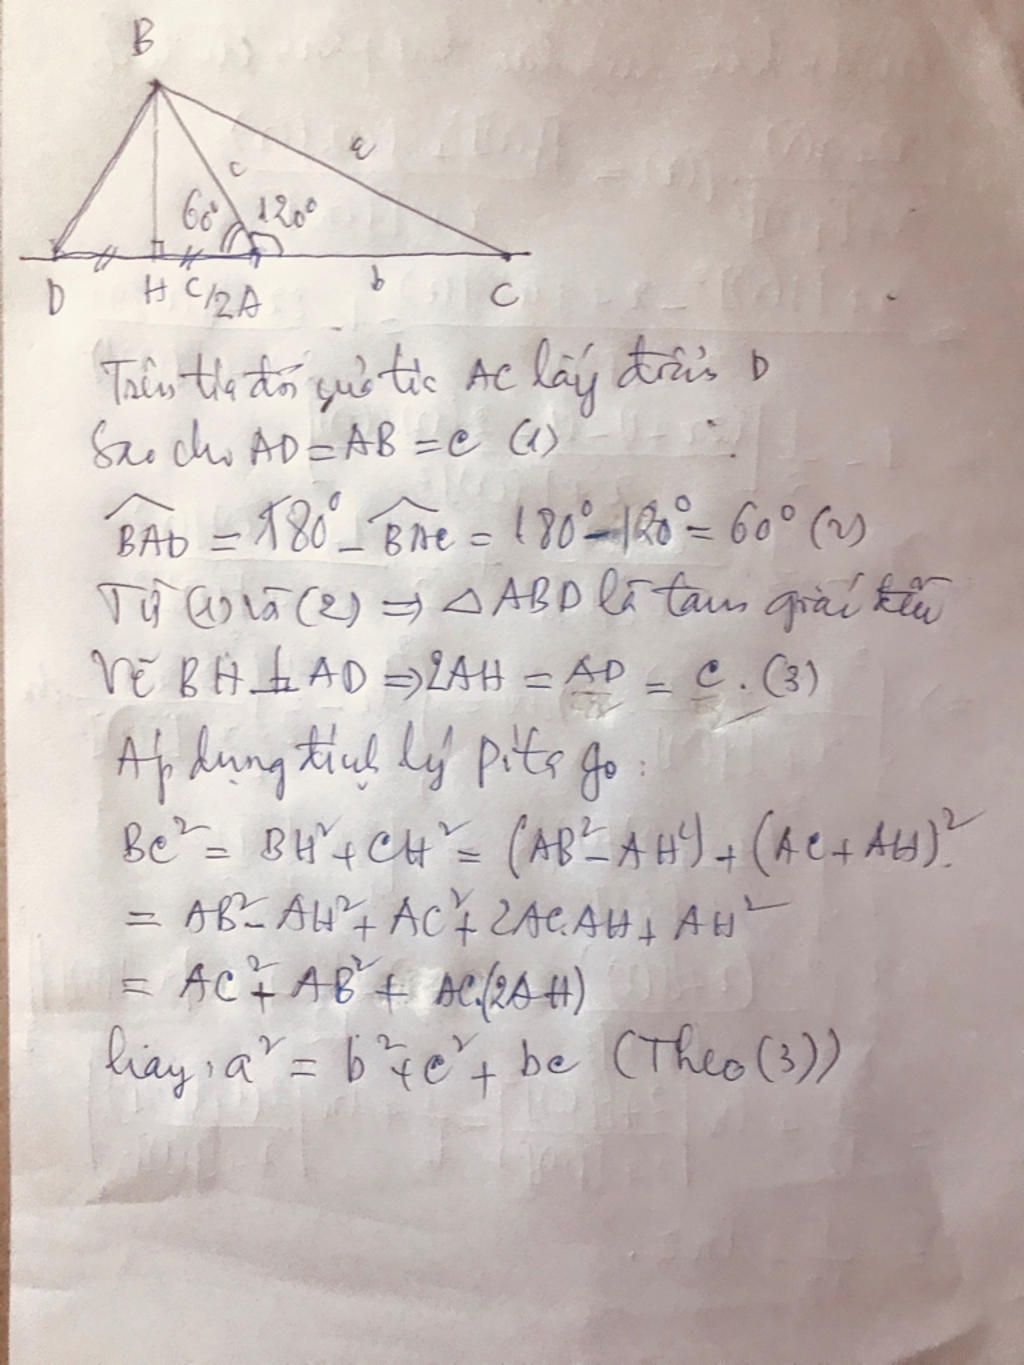 B
a
c
60° 120°
D H c/2 A b C
Trên tia đối của tia AC lấy điểm D
Sao cho AD = AB = c (1)
\widehat{BAD} = 180° - \widehat{BAC} = 180° - 120° = 60° (2)
Từ (1) và (2) => △ABD là tam giác đều
Vẽ BH ⊥ AD => 2AH = AD = c. (3)
Áp dụng định lý Pitago:
BC² = BH² + CH² = (AB² - AH²) + (AC + AH)².
= AB² - AH² + AC² + 2AC.AH + AH²
= AC² + AB² + AC.(2AH)
hay: a² = b² + c² + bc (Theo (3))